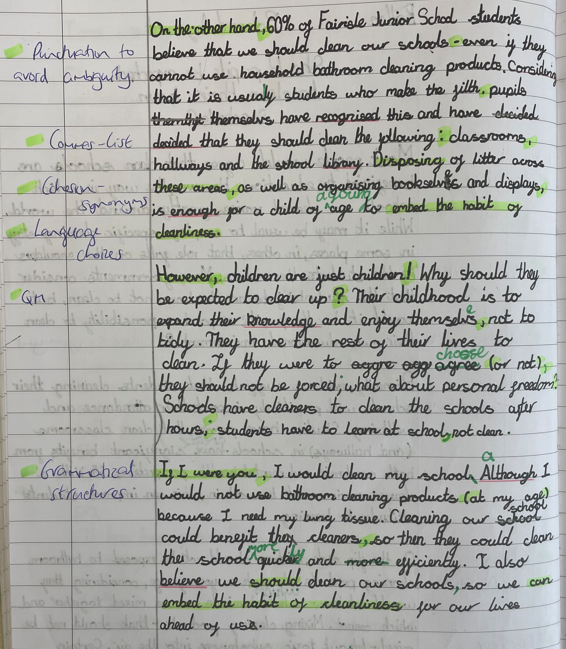 On the other hand, 60% of Fairisle Junior School students
Punctuation to
avoid ambiguity.
believe that we should clean our schools - even if they
cannot use household bathroom cleaning products. Considering
that it is usualy students who make the filth, pupils
themselvs have recognised this and have decided
Commas-list
decided that they should clean the following : classrooms,
hallways and the school library. Disposing of litter across
Cohesion-
synonyms
these areas, as well as organising bookshelves and displays,
is enough for a child of a young age to embed the habit of
Language
choices
cleanliness.
However, children are just children! Why should they
QM
be expected to clear up ? Their childhood is to
expand their knowledge and enjoy themselves, not to
tidy. They have the rest of their lives to
clean. If they were to aggre agg agree choose (or not),
they should not be forced; what about personal freedom!
Schools have cleaners to clean the schools after
hours; students have to learn at school, not clean.
Grammatical
structures.
If I were you, I would clean my school, a Although I
would not use bathroom cleaning products (at my age)
because I need my lung tissue. Cleaning our school school
could benefit they cleaners, so then they could clean
the school more quickly and more efficiently. I also
believe we should clean our schools, so we can
embed the habit of cleanliness for our lives
ahead of us.